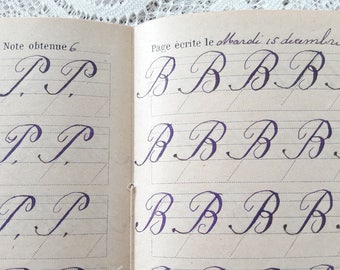 Note obtenue 6
P, P,
P, P,
P, P,
Page écrite le Mardi 15 décembre
B B B B B
B. B B B B
B B B B B